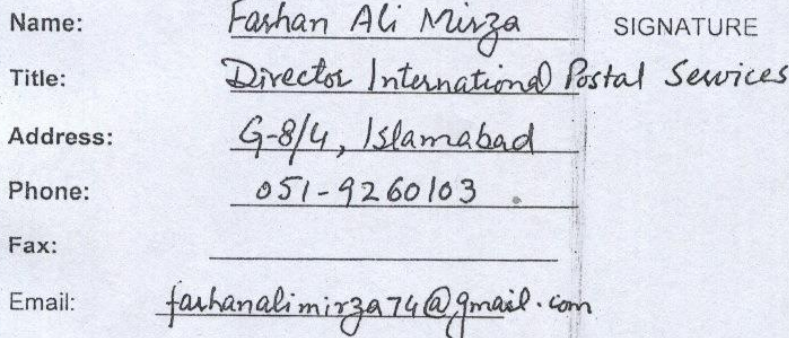 Name: Farhan Ali Mirza SIGNATURE
Title: Director International Postal Services
Address: G-8/4, Islamabad
Phone: 051-9260103
Fax:
Email: farhanalimirza74@gmail.com